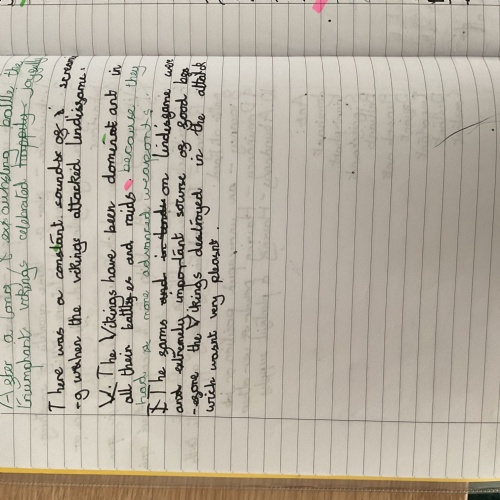 After a long & exhausting battle the
triumphant vikings celebrated happily joyfully
There was a constant sound of scream
-g when the vikings attacked Lindisgame.
V. The Vikings have been dominant in
all their battles and raids because they
had a more advanced weapons.
I The farms and in lands on lindisgame wer
and extremly important sourse of good bec
-esore the Vikings destroyed in the attack
wich wasnt very pleasnt.